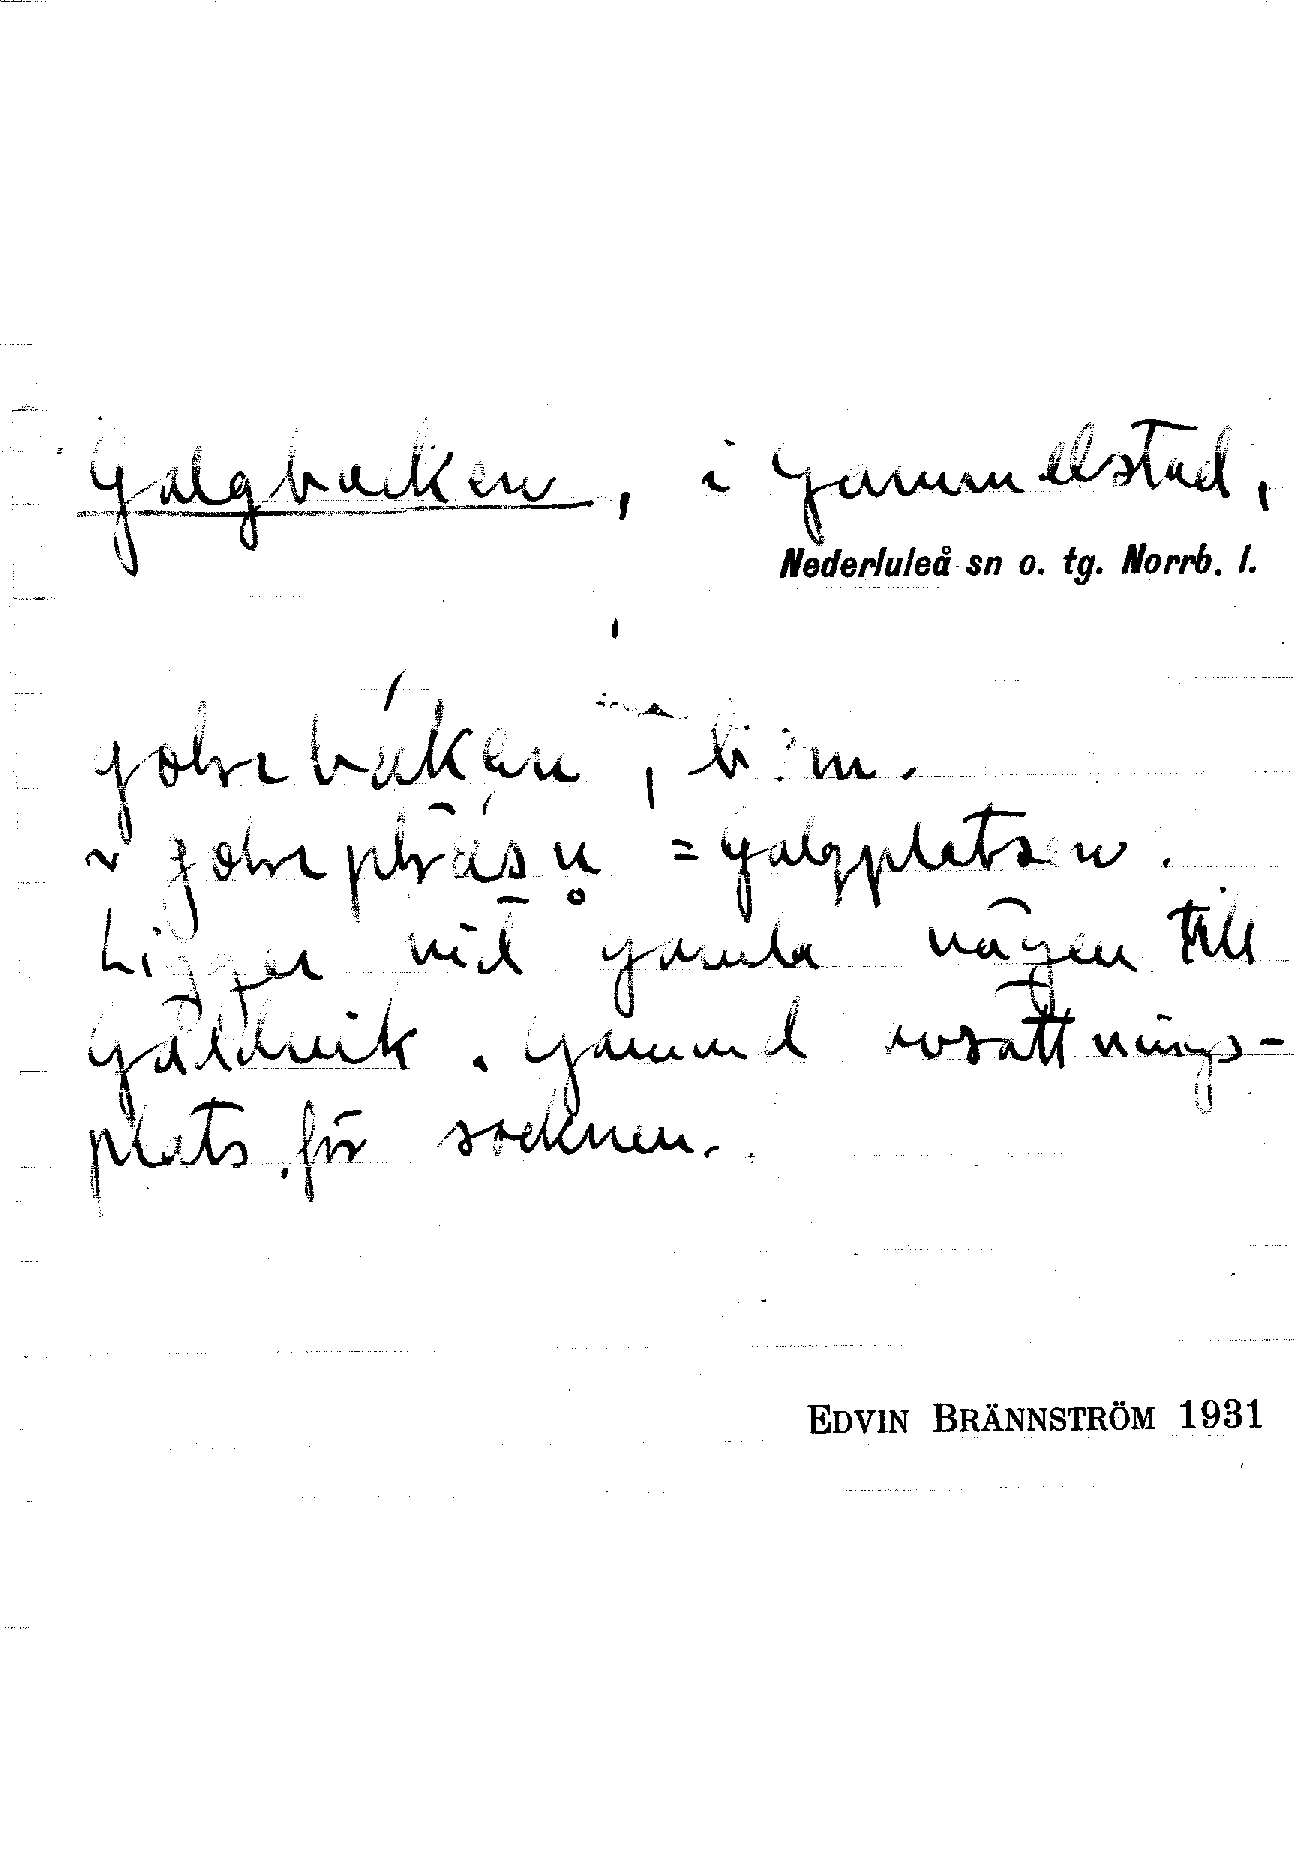 Galgbacken, i Gammelstad,
Nederluleå sn o. tg. Norrb. l.
= Galgplatsen.
Ligger vid gamla vägen till
Gäddvik. Gammal avrättnings-
plats för socknen.
EDVIN BRÄNNSTRÖM 1931